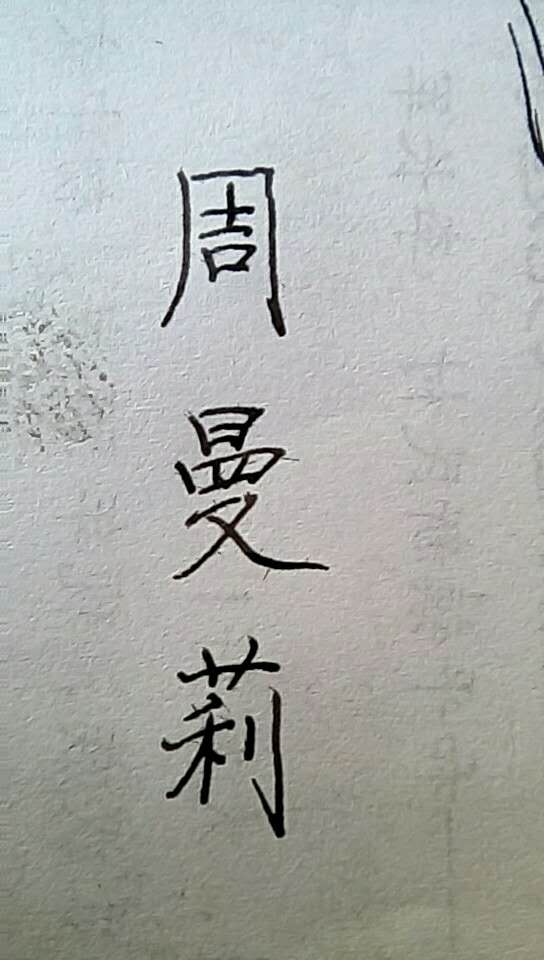 周曼莉